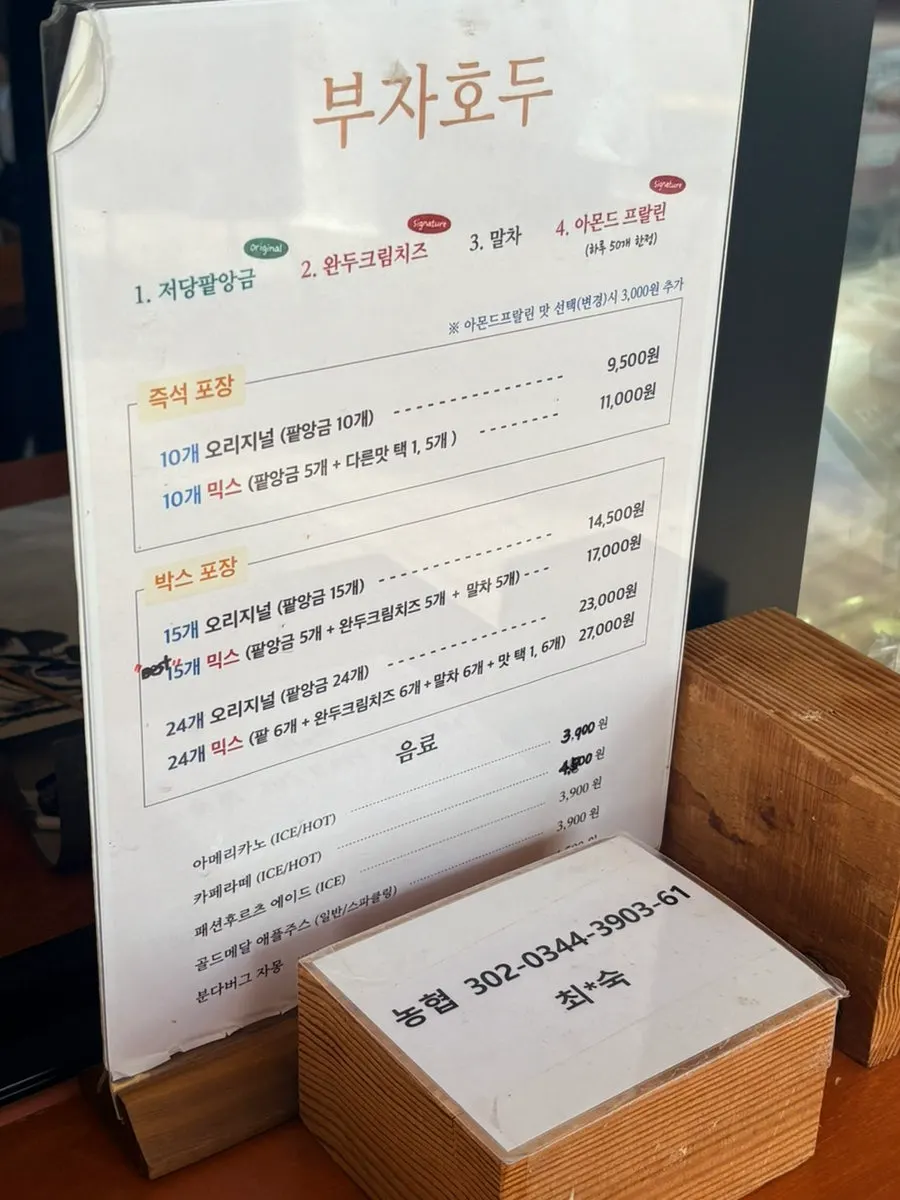 부자호두
Original
1. 저당팥앙금
Signature
2. 완두크림치즈
3. 말차
Signature
4. 아몬드 프랄린
(하루 50개 한정)
※ 아몬드프랄린 맛 선택(변경)시 3,000원 추가
즉석 포장
10개 오리지널 (팥앙금 10개) 9,500원
10개 믹스 (팥앙금 5개 + 다른맛 택 1, 5개 ) 11,000원
박스 포장
15개 오리지널 (팥앙금 15개) 14,500원
"Best" 15개 믹스 (팥앙금 5개 + 완두크림치즈 5개 + 말차 5개) 17,000원
24개 오리지널 (팥앙금 24개) 23,000원
24개 믹스 (팥 6개 + 완두크림치즈 6개 + 말차 6개 + 맛 택 1, 6개) 27,000원
음료
아메리카노 (ICE/HOT) 3,900 원
카페라떼 (ICE/HOT) 원
패션후르츠 에이드 (ICE) 3,900 원
골드메달 애플주스 (일반/스파클링) 3,900 원
분다버그 자몽
농협 302-0344-3903-61
최*숙